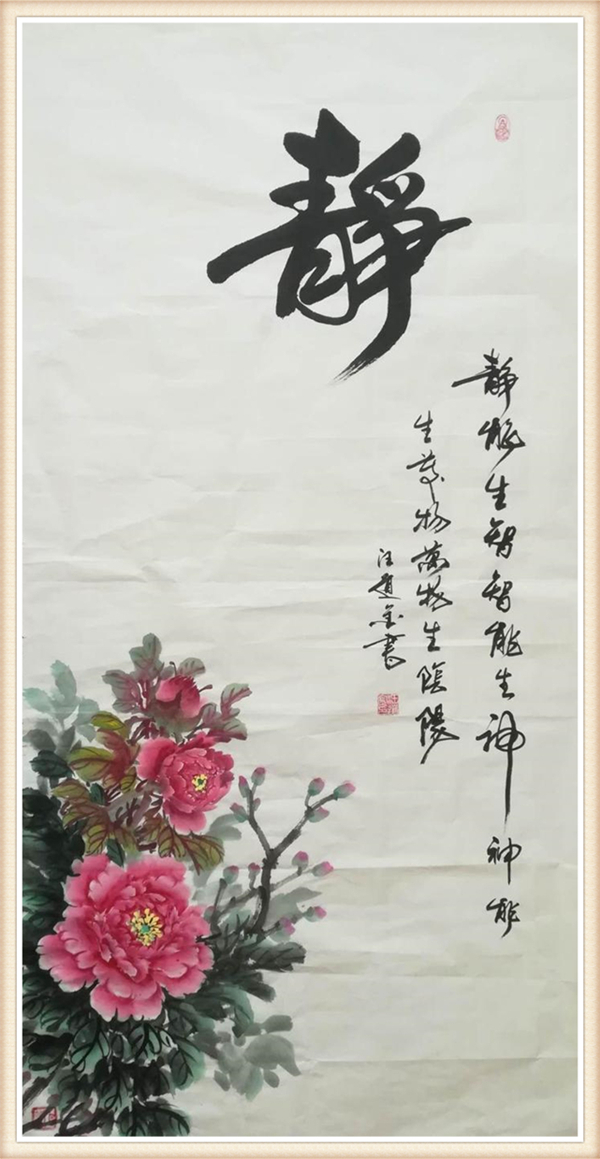 靜
靜能生智智能生神神能
生萬物萬物生陰陽
汪道金書